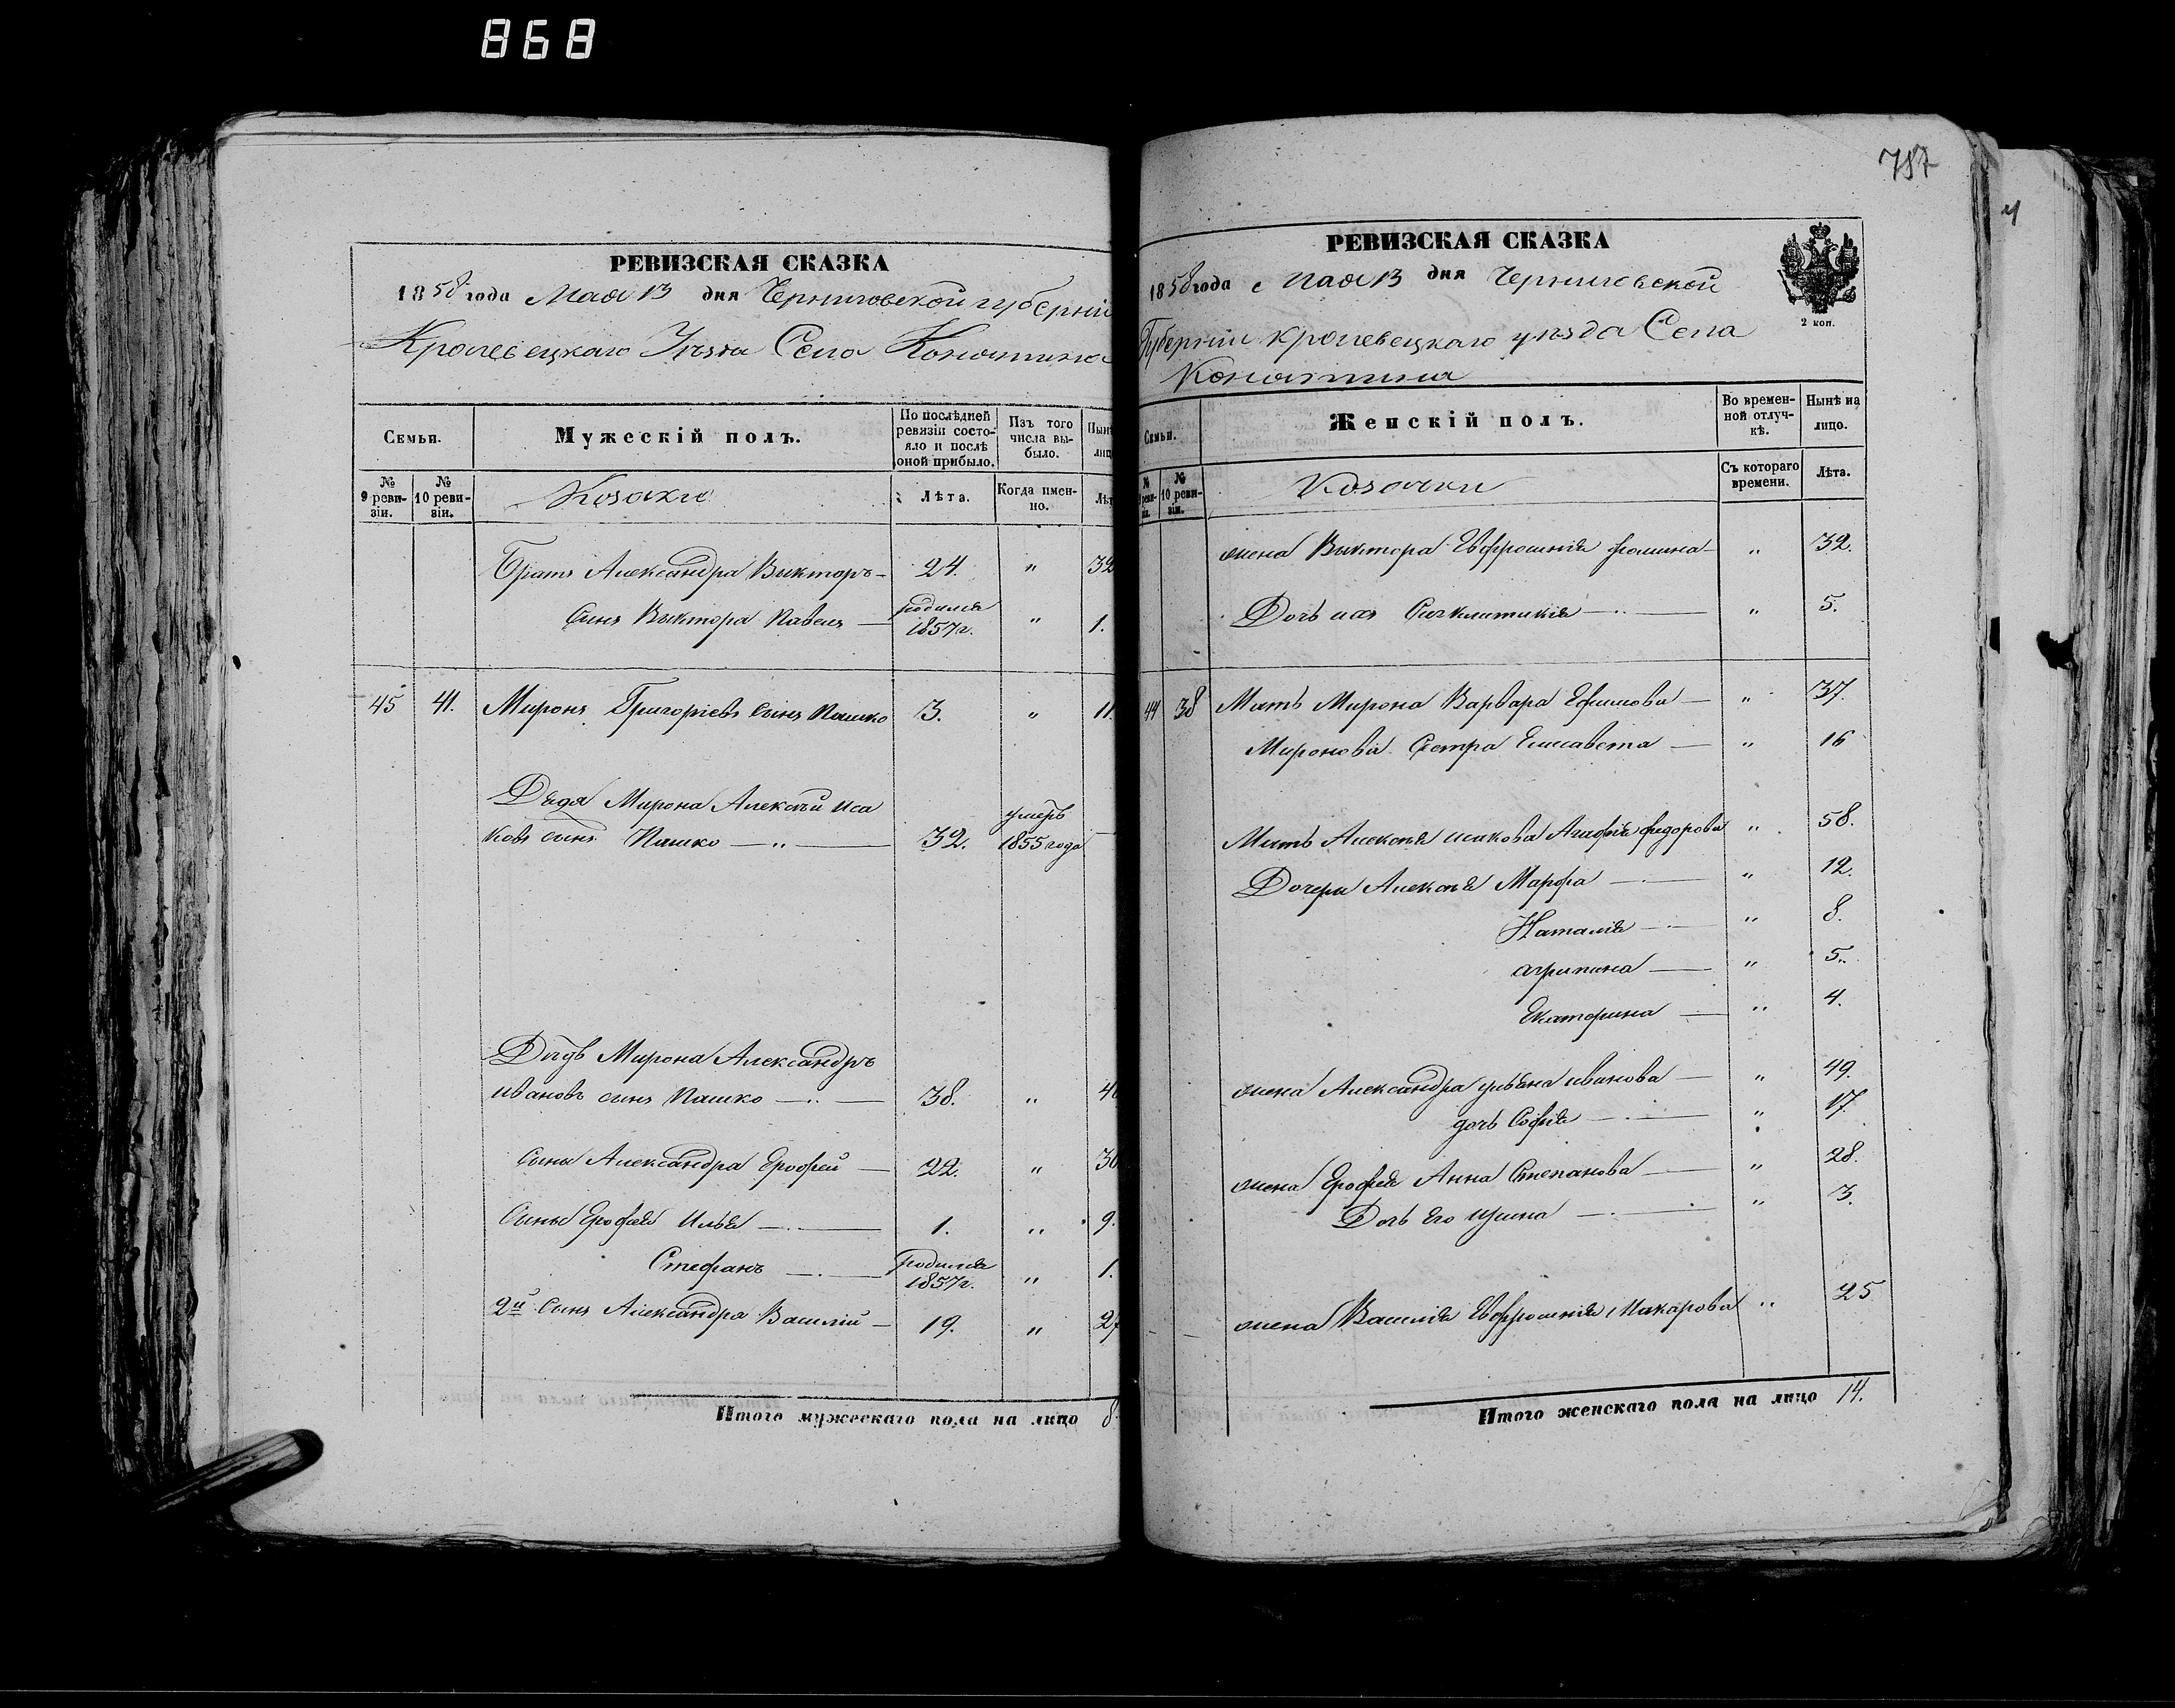 868
787
4
РЕВИЗСКАЯ СКАЗКА
1858 года Мая 13 дня Черниговской губерніи
Кролевецкаго Уѣзда Села Конятина
Семьи.
Мужескій полъ.
По послѣдней ревизіи состояло и послѣ оной прибыло.
Изъ того числа выбыло.
Нынѣ лиц
№ 9 ревизіи.
№ 10 ревизіи.
Козаки
Лѣта.
Когда именно.
Лѣт
Братъ Александра Викторъ — 24. " 32
Сынъ Виктора Павелъ — родился 1857 г. " 1.
45 41. Миронъ Григоріевъ сынъ Пашко 3. " 11.
Дядя Мирона Алексѣй Иса
ковъ сынъ Пашко — " — 32. умеръ 1855 года —
Дѣдъ Мирона Александръ
Ивановъ сынъ Пашко — " — 38. " 4
Сынъ Александра Ерофей — 22. " 30
Сыны Ерофея Илья — 1. " 9.
Стефанъ — родился 1857 г. " 1.
2й Сынъ Александра Василій — 19. " 27
Итого мужескаго пола на лицо 8.
РЕВИЗСКАЯ СКАЗКА
1858 года Мая 13 дня Черниговской
Губерніи Кролевецкаго уѣзда Села
Конятина
2 коп.
Семьи.
Женскій полъ.
Во временной отлучкѣ.
Нынѣ на лицо.
№ реви- зіи.
№ 10 ревизіи.
Козачки
Съ котораго времени.
Лѣта.
жена Виктора Евфросинія Фомина — " 32.
Дочь ихъ Синклитикія — " — " 5.
44 38 Мать Мирона Варвара Ефимова — " 37.
Миронова Сестра Елисавета — " 16
Мать Алексѣя Исакова Агафія Федорова " 58.
Дочери Алексѣя Марфа — " 12.
Наталія — " 8.
Агрипина — " 5.
Екатерина — " 4.
жена Александра Ульяна Иванова — " 49.
дочь Софія — " 17.
жена Ерофея Анна Степанова — " 28.
Дочь Его Ирина — " 3.
жена Василія Евфросинія Макарова " 25
Итого женскаго пола на лицо 14.